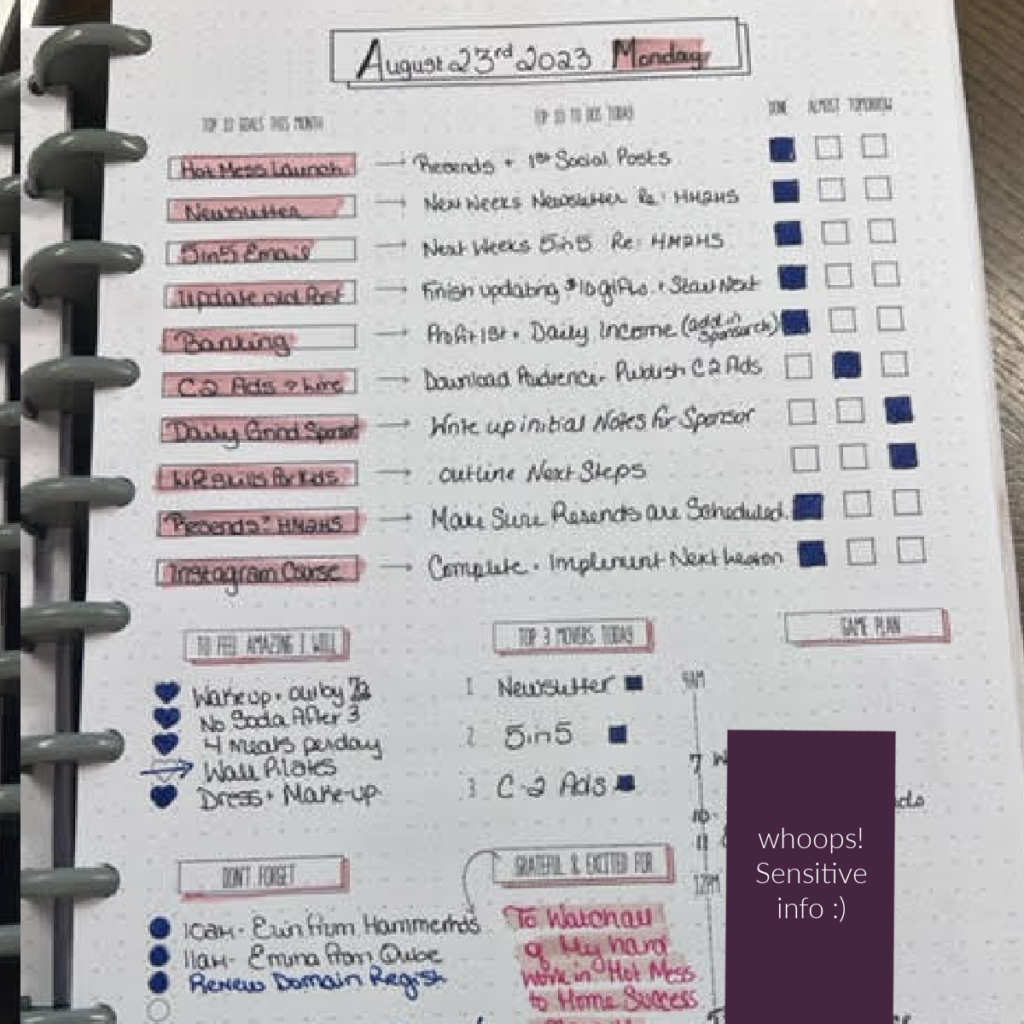 August 23rd 2023 Monday
TOP 10 GOALS THIS MONTH
TOP 10 TO DOS TODAY
DONE ALMOST TOMORROW
Hot Mess Launch → Resends + 1st Social Posts
Newsletter → New Weeks Newsletter Re: HM2HS
5in5 Email → Next Weeks 5in5 Re: HM2HS
Update old Post → Finish updating $10 gifts + Start Next
Banking → Profit 1st + Daily Income (add in Sponsorsh)
C2 Ads → Download Audience + Publish C2 Ads
Daily Grind Sponsor → Write up initial Notes for Sponsor
→ outline Next Steps
"Resends" HM2HS → Make Sure Resends are Scheduled
Instagram Course → Complete + Implement Next
TO FEEL AMAZING I WILL
Wake up + out by 7a
No Soda After 3
4 meals per day
Wall Pilates
Dress + Make-up
TOP 3 MOVERS TODAY
1 Newsletter
2 5in5
3 C-2 Ads
GAME PLAN
7
10
11
12PM
whoops!
Sensitive
info :)
DON'T FORGET
10am - Erin from
11am - Emma from Qube
Renew Domain Regist
GRATEFUL & EXCITED FOR
To Watch all
of My hard
work in Hot Mess
to Home Success